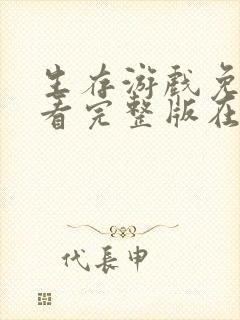 生存游戏免
看完整版在
代長申